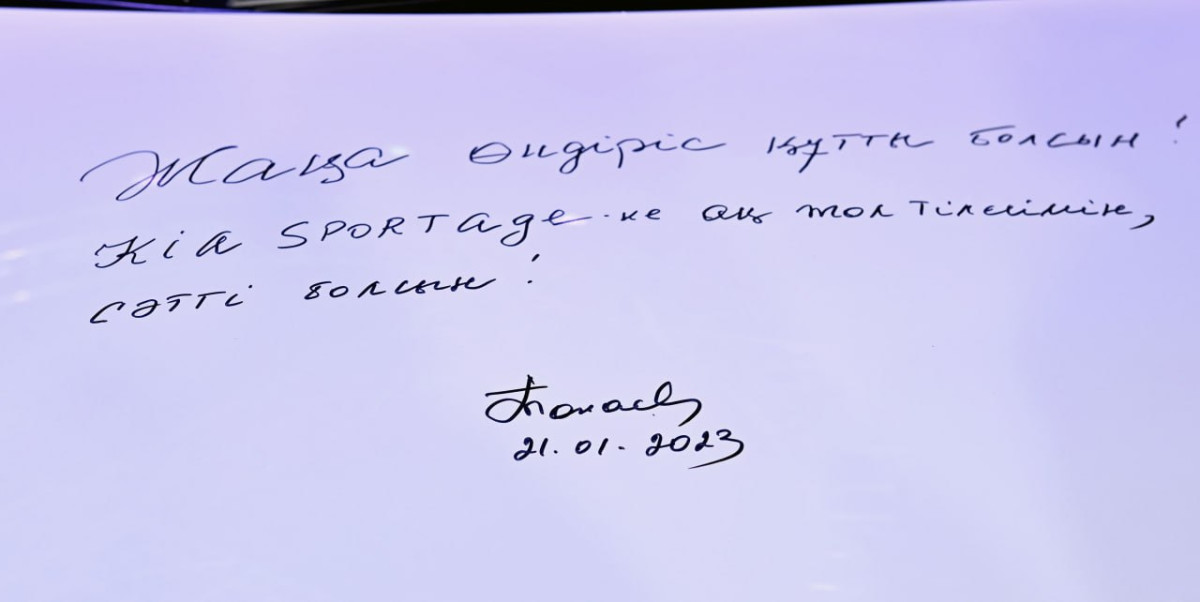 Жаңа өндіріс құтты болсын!
Kia SPORTAge-ке ақ жол тілеймін,
сәтті болсын!
Тоқаев
21.01.2023